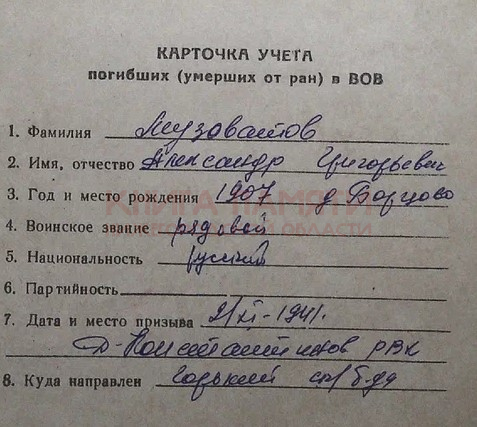 КАРТОЧКА УЧЕТА
погибших (умерших от ран) в ВОВ
1. Фамилия Музоватов
2. Имя, отчество Александр Григорьевич
3. Год и место рождения 1907 д. Борцово
КНИГА ПАМЯТИ
4. Воинское звание рядовой
ОБЛАСТИ
5. Национальность русский
6. Партийность
7. Дата и место призыва 2/XI-1941г.
Д-Константинов РВК
8. Куда направлен Горький